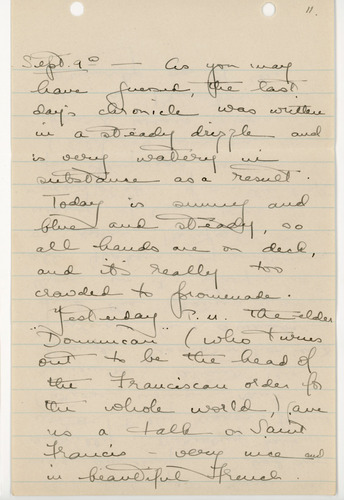 11.
Sept. 9th — As you may
have guessed, the last
day's chronicle was written
in a steady drizzle and
is very watery in
substance as a result.
Today is sunny and
blue and steady, so
all hands are on deck,
and it's really too
crowded to promenade.
Yesterday P.M. the elder
"Dominican" (who turns
out to be the head of
the Franciscan order for
the whole world,) gave
us a talk on Saint
Francis — very nice and
in beautiful French.